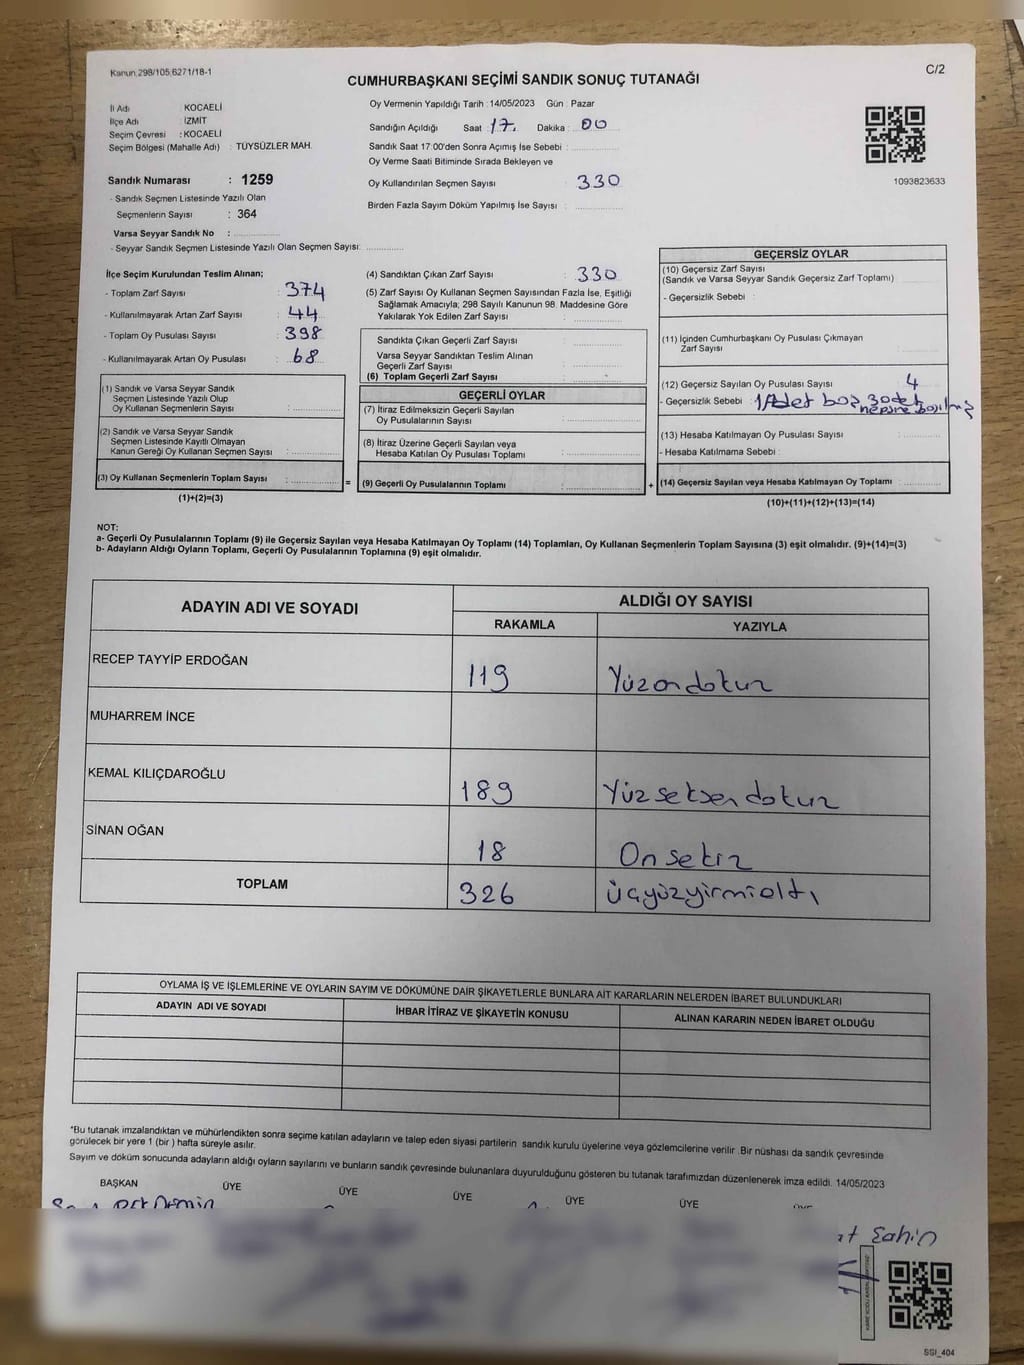 Kanun,298/105,6271/18-1
C/2
CUMHURBAŞKANI SEÇİMİ SANDIK SONUÇ TUTANAĞI
İl Adı KOCAELİ
İlçe Adı İZMİT
Seçim Çevresi : KOCAELİ
Seçim Bölgesi (Mahalle Adı) : TÜYSÜZLER MAH.
Sandık Numarası : 1259
- Sandık Seçmen Listesinde Yazılı Olan
Seçmenlerin Sayısı : 364
Varsa Seyyar Sandık No :
- Seyyar Sandık Seçmen Listesinde Yazılı Olan Seçmen Sayısı:
Oy Vermenin Yapıldığı Tarih : 14/05/2023 Gün : Pazar
Sandığın Açıldığı Saat : 17. Dakika : 00
Sandık Saat 17:00'den Sonra Açımış İse Sebebi :
Oy Verme Saati Bitiminde Sırada Bekleyen ve
Oy Kullandırılan Seçmen Sayısı : 330
Birden Fazla Sayım Döküm Yapılmış İse Sayısı :
1093823633
İlçe Seçim Kurulundan Teslim Alınan;
- Toplam Zarf Sayısı : 374
- Kullanılmayarak Artan Zarf Sayısı : 44
- Toplam Oy Pusulası Sayısı : 398
- Kullanılmayarak Artan Oy Pusulası : 68
(1) Sandık ve Varsa Seyyar Sandık
Seçmen Listesinde Yazılı Olup
Oy Kullanan Seçmenlerin Sayısı :
(2) Sandık ve Varsa Seyyar Sandık
Seçmen Listesinde Kayıtlı Olmayan
Kanun Gereği Oy Kullanan Seçmen Sayısı :
(3) Oy Kullanan Seçmenlerin Toplam Sayısı :
(1)+(2)=(3)
=
(4) Sandıktan Çıkan Zarf Sayısı : 330
(5) Zarf Sayısı Oy Kullanan Seçmen Sayısından Fazla İse, Eşitliği
Sağlamak Amacıyla; 298 Sayılı Kanunun 98. Maddesine Göre
Yakılarak Yok Edilen Zarf Sayısı :
Sandıkta Çıkan Geçerli Zarf Sayısı :
Varsa Seyyar Sandıktan Teslim Alınan
Geçerli Zarf Sayısı :
(6) Toplam Geçerli Zarf Sayısı :
GEÇERLİ OYLAR
(7) İtiraz Edilmeksizin Geçerli Sayılan
Oy Pusulalarının Sayısı :
(8) İtiraz Üzerine Geçerli Sayılan veya
Hesaba Katılan Oy Pusulası Toplamı :
(9) Geçerli Oy Pusulalarının Toplamı :
+
GEÇERSİZ OYLAR
(10) Geçersiz Zarf Sayısı
(Sandık ve Varsa Seyyar Sandık Geçersiz Zarf Toplamı) :
- Geçersizlik Sebebi :
(11) İçinden Cumhurbaşkanı Oy Pusulası Çıkmayan
Zarf Sayısı :
(12) Geçersiz Sayılan Oy Pusulası Sayısı : 4
- Geçersizlik Sebebi : 1 Adet boş, 3 adet
hepsine basılmış
(13) Hesaba Katılmayan Oy Pusulası Sayısı :
- Hesaba Katılmama Sebebi :
(14) Geçersiz Sayılan veya Hesaba Katılmayan Oy Toplamı :
(10)+(11)+(12)+(13)=(14)
NOT:
a- Geçerli Oy Pusulalarının Toplamı (9) ile Geçersiz Sayılan veya Hesaba Katılmayan Oy Toplamı (14) Toplamları, Oy Kullanan Seçmenlerin Toplam Sayısına (3) eşit olmalıdır. (9)+(14)=(3)
b- Adayların Aldığı Oyların Toplamı, Geçerli Oy Pusulalarının Toplamına (9) eşit olmalıdır.
ADAYIN ADI VE SOYADI ALDIĞI OY SAYISI
RAKAMLA YAZIYLA
RECEP TAYYİP ERDOĞAN 119 Yüzondokuz
MUHARREM İNCE
KEMAL KILIÇDAROĞLU 189 Yüzseksendokuz
SİNAN OĞAN 18 Onsekiz
TOPLAM 326 Üçyüzyirmialtı
OYLAMA İŞ VE İŞLEMLERİNE VE OYLARIN SAYIM VE DÖKÜMÜNE DAİR ŞİKAYETLERLE BUNLARA AİT KARARLARIN NELERDEN İBARET BULUNDUKLARI
ADAYIN ADI VE SOYADI İHBAR İTİRAZ VE ŞİKAYETİN KONUSU ALINAN KARARIN NEDEN İBARET OLDUĞU
*Bu tutanak imzalandıktan ve mühürlendikten sonra seçime katılan adayların ve talep eden siyasi partilerin sandık kurulu üyelerine veya gözlemcilerine verilir. Bir nüshası da sandık çevresinde
görülecek bir yere 1 (bir ) hafta süreyle asılır.
Sayım ve döküm sonucunda adayların aldığı oyların sayılarını ve bunların sandık çevresinde bulunanlara duyurulduğunu gösteren bu tutanak tarafımızdan düzenlenerek imza edildi. 14/05/2023
BAŞKAN ÜYE ÜYE ÜYE ÜYE ÜYE
Şahin
SSI_404